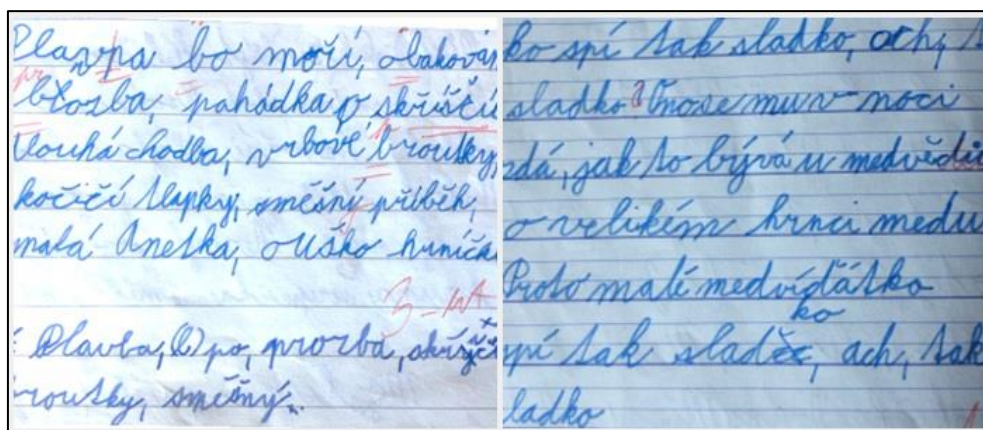 Plavpa bo moři, obakován
pr
btozba, pahádka o skříščí
dlouhá chodba, vrbové broutky,
kočičí tlapky, směšný příběh,
malá Anetka, ouško hrníčk
3-
Plavba, po, prozba, skřížč
routky, směšný.
ko spí tak sladko, ach, t
sladko? Onose mu v noci
zdá, jak to bývá u medvědů
o velikém hrnci medu
Proto malé medvíďátko
ko
spí tak sladč, ach, tak
ladko